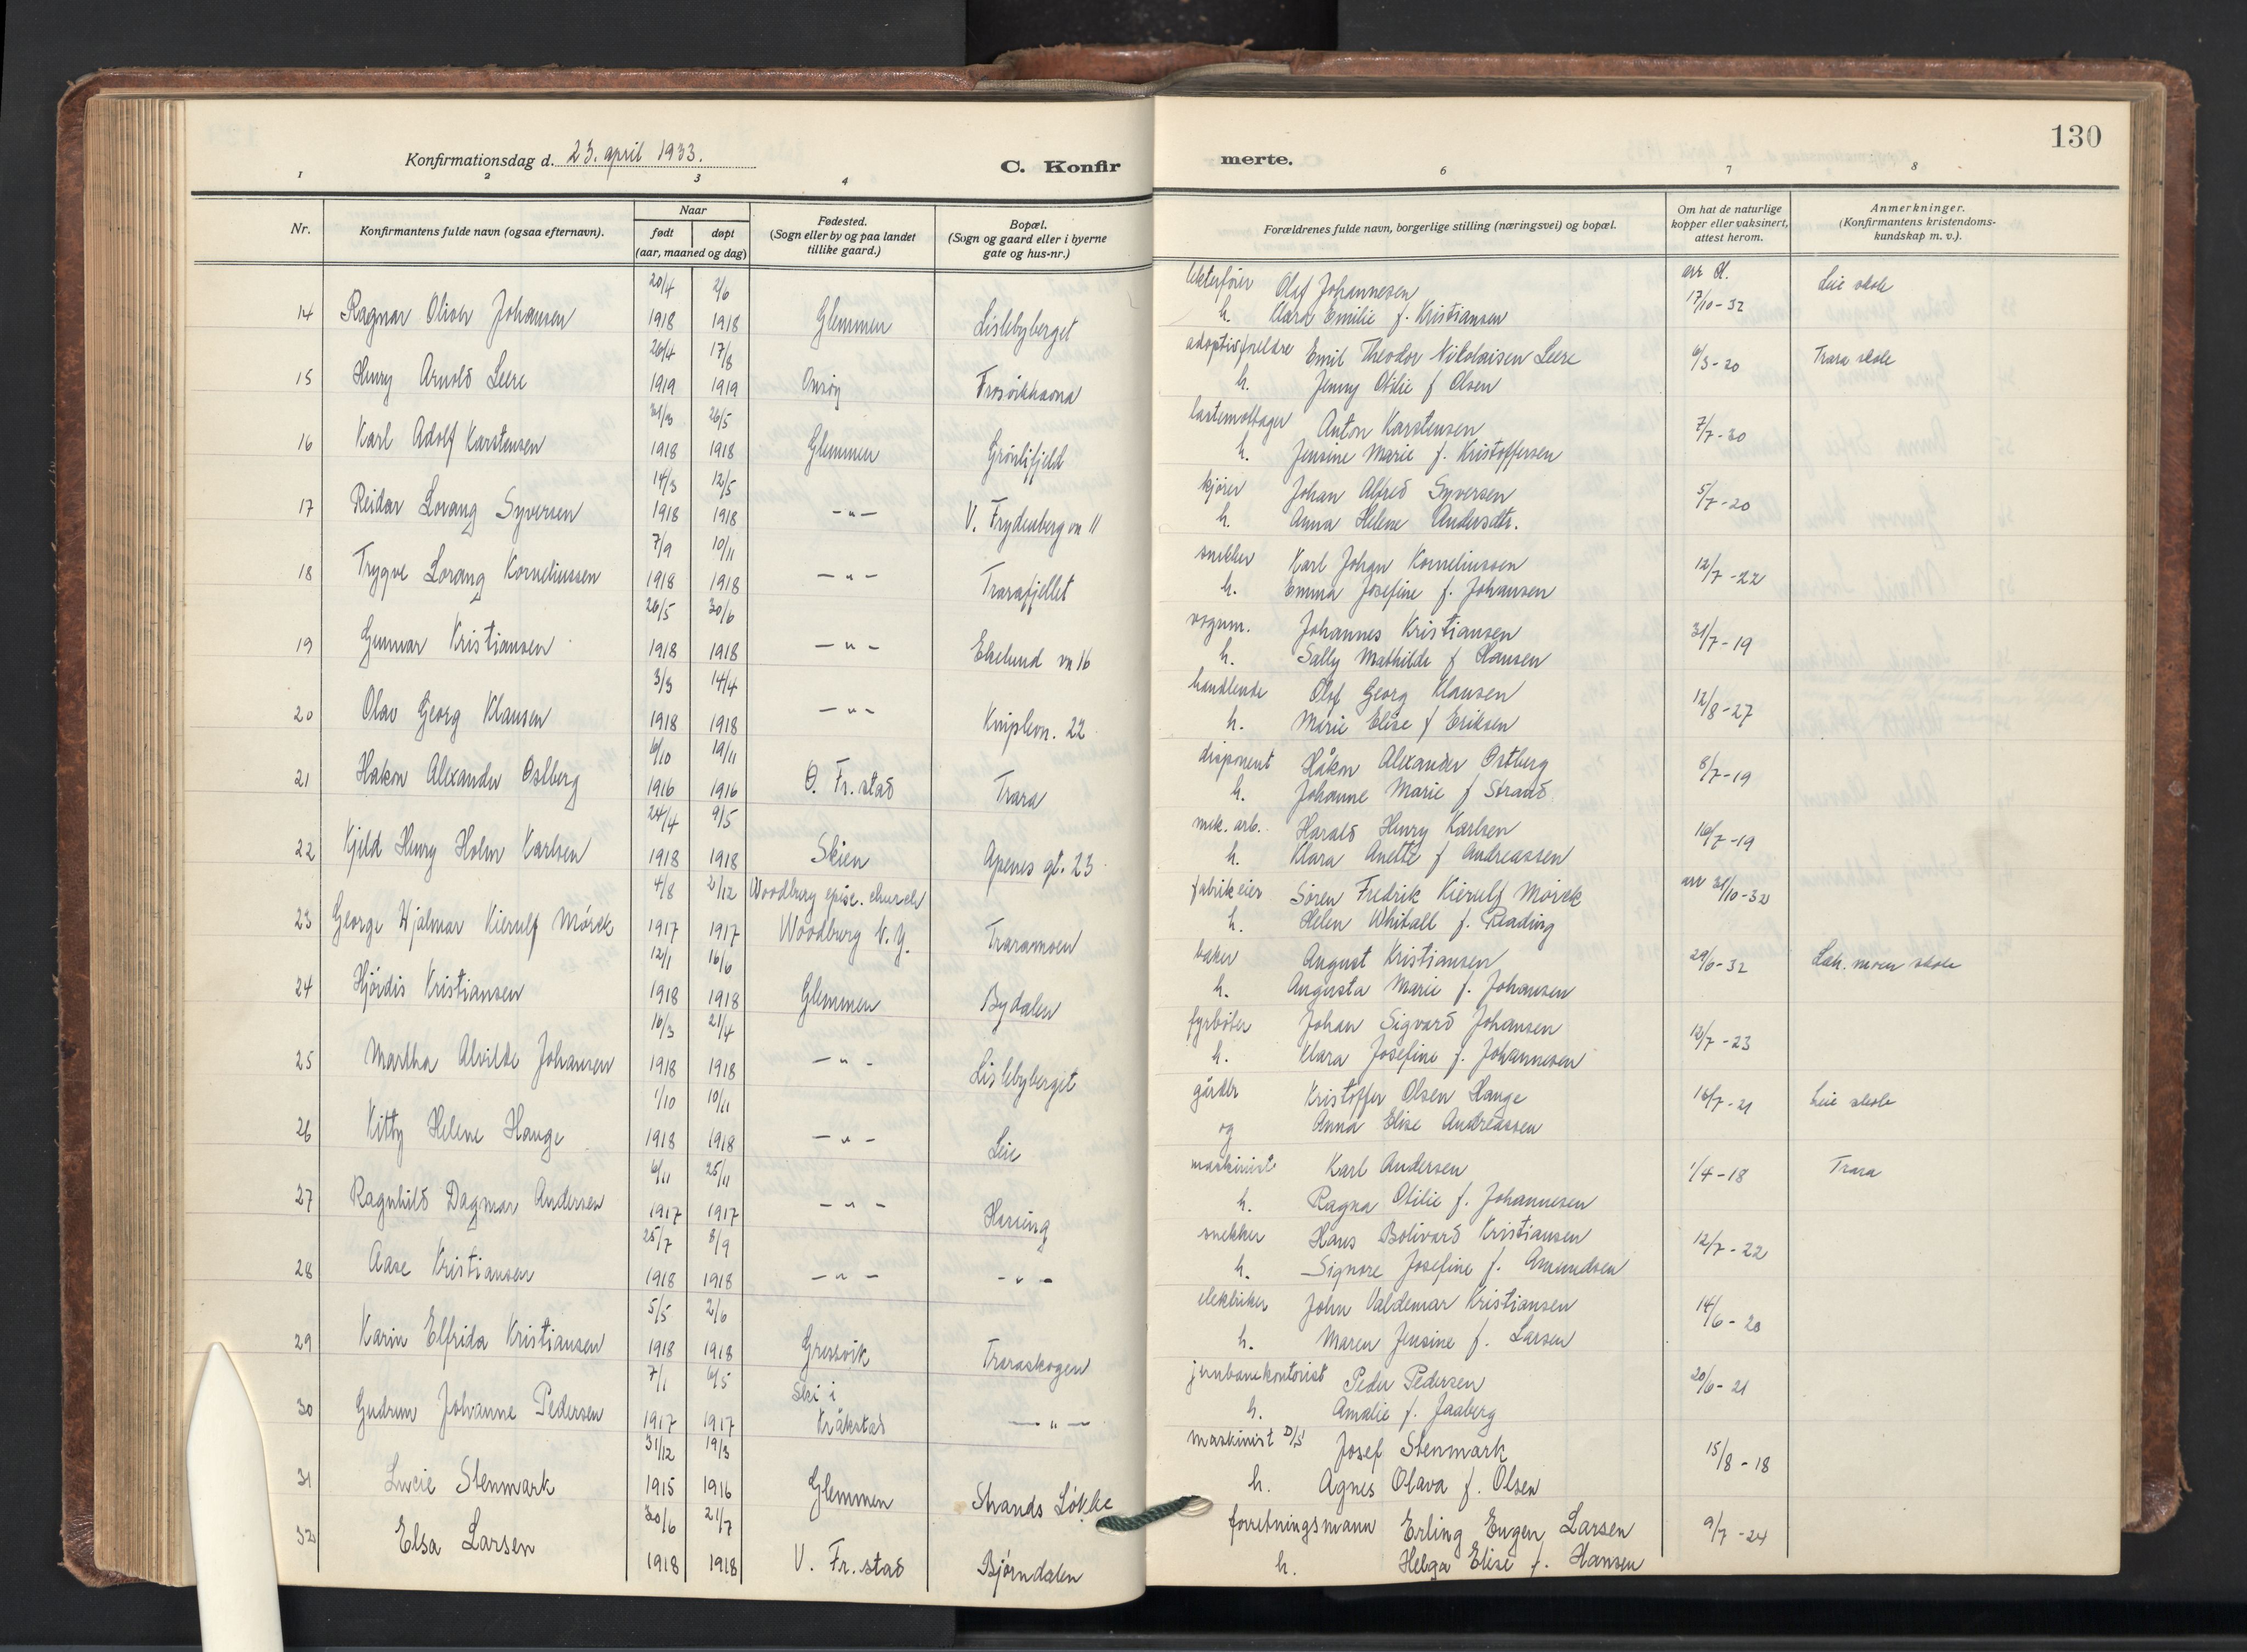 130
Konfirmationsdag d. 23. april 1933.
C. Konfir
merte.
1 2 3 4 6 7 8
Nr.
Konfirmantens fulde navn (ogsaa efternavn).
Naar
født døpt
(aar, maaned og dag)
Fødested.
(Sogn eller by og paa landet
tillike gaard.)
Bopæl.
(Sogn og gaard eller i byerne
gate og hus-nr.)
Forældrenes fulde navn, borgerlige stilling (næringsvei) og bopæl.
Om hat de naturlige
kopper eller vaksinert,
attest herom.
Anmerkninger.
(Konfirmantens kristendoms-
kundskap m. v.).
20/4 2/6 Olaf Johannesen Leie skole
14 Ragnar Oliver Johansen 1918 1918 Glemmen Lislebyberget h. Klara Emilie f. Kristiansen 17/10-32
26/4 17/8 adoptivforeldre Emil Theodor Nikolaisen Leere 6/3-20 Trara skole
15 Henry Arnold Leere 1919 1919 Onsøy h. Jenny Otilie f Olsen
31/3 26/5 Anton Karstensen 7/7-30
16 Karl Adolf Karstensen 1918 1918 Glemmen Grønlifjeld h. Jensine Marie f. Kristoffersen
14/3 12/5 kjører Johan Alfred Syversen 5/7-20
17 Reidar Lorang Syversen 1918 1918 -"- V. Frydenberg vn 11 h. Anna Helene Andersdtr.
7/9 10/11 snekker Karl Johan Korneliussen 12/7-22
18 Trygve Lorang Korneliussen 1918 1918 -"- Trarafjellet h. Emma Josefine f. Johansen
26/5 30/6 vognm. Johannes Kristiansen 31/7-19
19 Gunnar Kristiansen 1918 1918 -"- Ekelund vn 16 h. Sally Mathilde f Hansen
3/3 14/4 handlende Olaf Georg Klausen 12/8-27
20 Olav Georg Klausen 1918 1918 -"- Kniplevn. 22 h. Marie Elise f Eriksen
6/10 19/11 disponent Håkon Alexander Østberg 8/7-19
21 Håkon Alexander Østberg 1916 1916 Ø. Fr.stad Trara h. Johanne Marie f Strand
24/4 9/5 mek. arb. Harald Henry Karlsen 16/7-19
22 Kjeld Henry Holm Karlsen 1918 1918 Skien Apenes gt. 23 h. Klara Anette f Andreassen
4/8 2/12 Woodbury episc. church fabrikeier Søren Fredrik Kierulf Mørck arr 31/10-32
23 George Hjalmar Kierulf Mørck 1917 1917 Woodbury N.Y. Traramoen h. Helen Whitall f. Reading
12/1 16/6 baker August Kristiansen 29/6-32 Lah. moen skole
24 Hjørdis Kristiansen 1918 1918 Glemmen Bydalen h. Augusta Marie f. Johansen
16/3 21/4 fyrbøter Johan Sigvard Johansen 12/7-23
25 Martha Alvilde Johansen 1918 1918 -"- Lislebyberget h. Klara Josefine f. Johannesen
1/10 10/11 gårdbr Kristoffer Olsen Hauge 16/7-21 Leie skole
26 Kitty Helene Hauge 1918 1918 -"- Leie og Anna Elise Andreassen
6/11 25/11 maskinist Karl Andersen 1/4-18 Trara
27 Ragnhild Dagmar Andersen 1917 1917 -"- Hassing h. Ragna Otilie f. Johannesen
25/7 8/9 snekker Hans Bolivard Kristiansen 12/7-22
28 Aase Kristiansen 1918 1918 -"- -"- h. Signore Josefine f. Amundsen
5/5 2/6 elektriker John Valdemar Kristiansen 14/6-20
29 Karin Elfrida Kristiansen 1918 1918 Gressvik Traraskogen h. Maren Jensine f. Larsen
7/1 6/5 Ski i jernbanekontorist Peder Pedersen 20/6-21
30 Gudrun Johanne Pedersen 1917 1917 Kråkstad -"- h. Amalie f. Jaaberg
31/12 19/3 maskinist D/S Josef Stenmark 15/8-18
31 Lucie Stenmark 1915 1916 Glemmen Strands Løkke h. Agnes Olava f. Olsen
30/6 21/7 forretningsmann Erling Eugen Larsen 9/7-24
32 Elsa Larsen 1918 1918 V. Fr.stad Bjørndalen h. Helga Elise f. Hansen